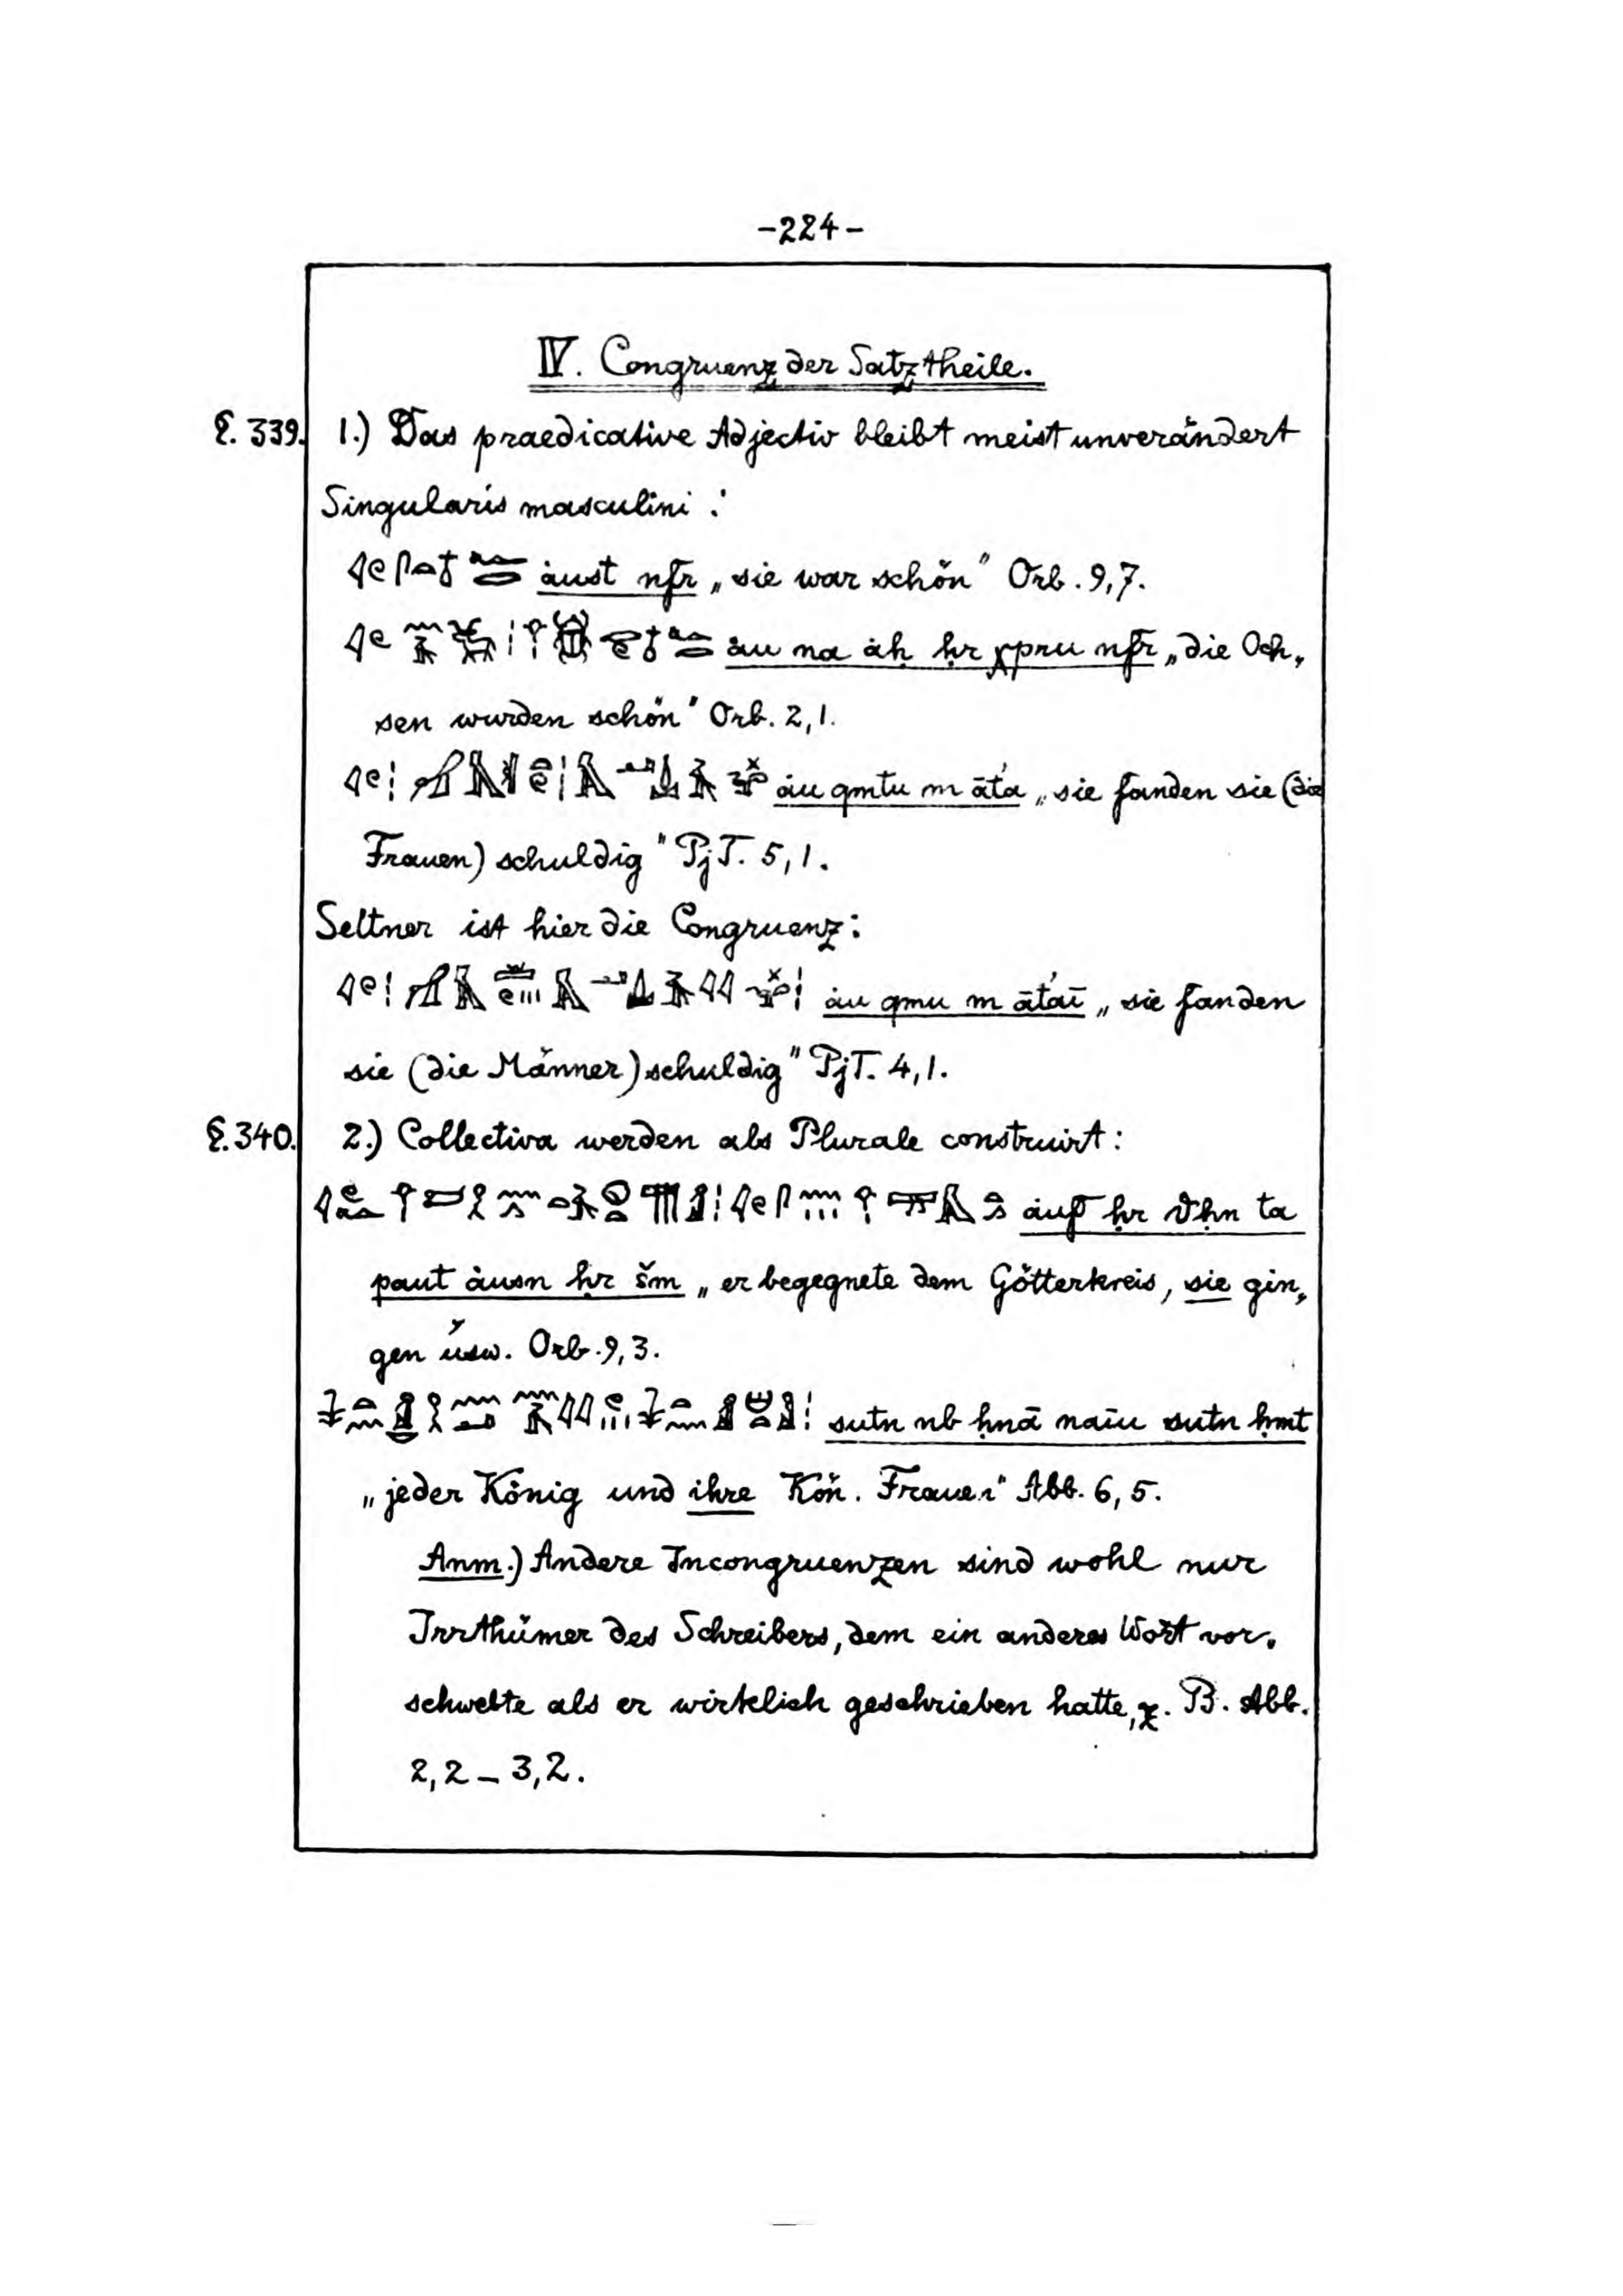 -224-
IV. Congruenz der Satztheile.
§. 339. 1.) Das praedicative Adjectiv bleibt meist unverändert
Singularis masculini :
ȧust nfr „sie war schön" Orb. 9,7.
ȧu na ȧḥ ḥr χpru nfr „die Och„
sen wurden schön" Orb. 2,1.
ȧu qmtu m āt́a „sie fanden sie (die
Frauen) schuldig" PjT. 5,1.
Seltner ist hier die Congruenz:
ȧu qmu m āt́aī „sie fanden
sie (die Männer) schuldig" PjT. 4,1.
§. 340. 2.) Collectiva werden als Plurale construirt:
ȧuf ḥr ϑhn ta
paut ȧusn ḥr šm „er begegnete dem Götterkreis, sie gin„
gen usw. Orb. 9,3.
sutn nb ḥnā naīu sutn ḥmt
„jeder König und ihre Kön. Frauen" Abb. 6,5.
Anm.) Andere Incongruenzen sind wohl nur
Irrthümer des Schreibers, dem ein anderes Wort vor„
schwebte als er wirklich geschrieben hatte, z. B. Abb.
2,2 – 3,2.